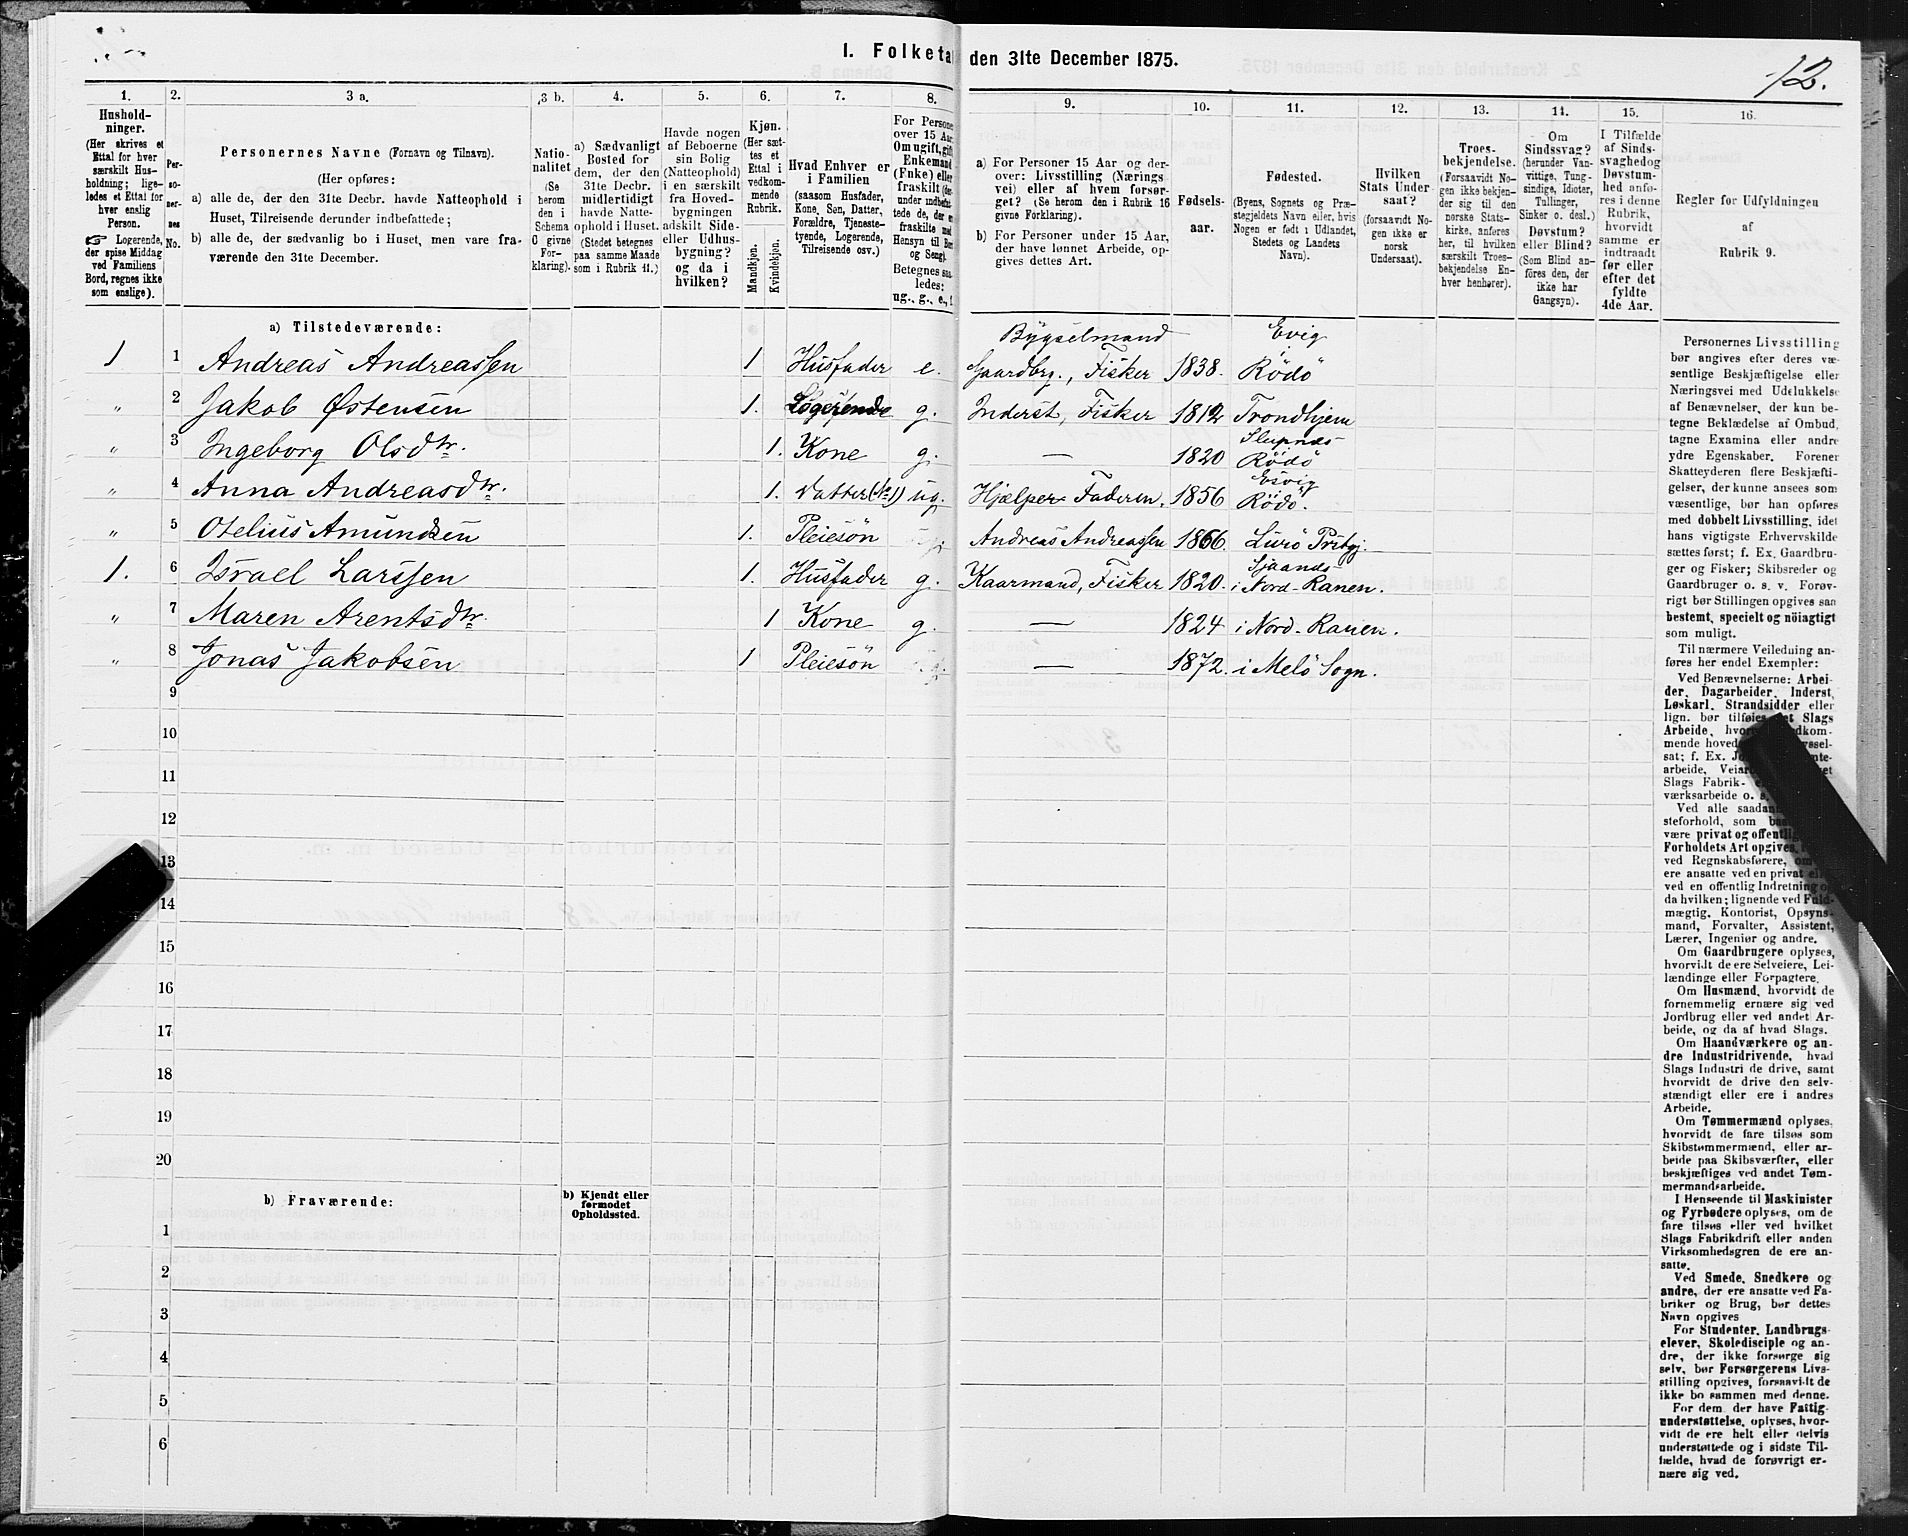 I. Folketal den 31te December 1875.
12.
1.
Hushold-
ninger.
(Her skrives et
Ettal for hver
særskilt Hus-
holdning; lige-
ledes et Ettal for
hver enslig
Person.
Logerende,
der spise Middag
ved Familiens
Bord, regnes ikke
som enslige).
2.
Per-
so-
ner-
nes
No.
3 a.
Personernes Navne (Fornavn og Tilnavn).
(Her opføres:
a) alle de, der den 31te Decbr. havde Natteophold i
Huset, Tilreisende derunder indbefattede;
b) alle de, der sædvanlig bo i Huset, men vare fra-
værende den 31te December.
3 b.
Natio-
nalitet
(Se
herom
den i
Schema
C givne
For-
klaring).
4.
a) Sædvanligt
Bosted for
dem, der den
31te Decbr.
midlertidigt
havde Natte-
ophold i Huset.
(Stedet betegnes
paa samme Maade
som i Rubrik 11.)
5.
Havde nogen
af Beboerne
sin Bolig
(Natteophold)
i en særskilt
fra Hoved-
bygningen
adskilt Side-
eller Udhus-
bygning?
og da i
hvilken?
6.
Kjøn.
(Her sæt-
tes et
Ettal i
vedkom-
mende
Rubrik.
Mandkjøn.
Kvindekjøn.
7.
Hvad Enhver er
i Familien
(saasom Husfader,
Kone, Søn, Datter,
Forældre, Tjeneste-
tyende, Logerende,
Tilreisende osv.)
8.
For Persone
over 15 Aar
Om ugift, gift
Enkemand
(Enke) eller
fraskilt
under indbefat-
tede de, der e
fraskilte med
Hensyn til Bo
og Seng).
Betegnes saa-
ledes:
ug., g., e., f.
9.
a) For Personer 15 Aar og der-
over: Livsstilling (Nærings-
vei) eller af hvem forsør-
get? (Se herom den i Rubrik 16
givne Forklaring).
b) For Personer under 15 Aar,
der have lønnet Arbeide, op-
gives dettes Art.
10.
Fødsels-
aar.
11.
Fødested.
(Byens, Sognets og Præ-
stegjeldets Navn eller, hvis
Nogen er født i Udlandet,
Stedets og Landets
Navn).
12.
Hvilken
Stats Under-
saat?
(forsaavidt No-
gen ikke er
norsk
Undersaat).
13.
Troes-
bekjendelse.
(Forsaavidt No-
gen ikke bekjen-
der sig til den
norske Stats-
kirke, anføres
her, til hvilken
særskilt Troes-
bekjendelse En-
hver henhører).
14.
Om
Sindssvag?
(herunder Van-
vittige, Tung-
sindige, Idioter,
Tullinger,
Sinker o. desl.)
Døvstum?
eller Blind?
(Som Blind an-
føres den, der
ikke har
Gangsyn).
15.
I Tilfælde
af Sinds-
svaghed og
Døvstum-
hed anfø-
res i denne
Rubrik,
hvorvidt
samme er
indtraadt
før eller
efter det
fyldte
4de Aar.
16.
Regler for Udfyldningen
af
Rubrik 9.
a) Tilstedeværende:
Bygselmand Evig
1 1 Andreas Andreassen 1 Husfader e. Gaardbrg., Fisker 1838. Rödö
" 2 Jakob Østensen 1. Logerende g. Inderst, Fisker 1812 Trondhjem
" 3 Ingeborg Olsdtr. 1. Kone g. — 1820 Rödö
" 4 Anna Andreasdtr. 1. Datter (No 1) ug. Hjælper Faderen. 1856 Esvig Rödö.
" 5 Otelius Amundsen 1. Pleiesön Andreas Andreassen 1866. Lurö Prstgj.
1. 6 Israel Larssen 1. Husfader g. Kaarmand, Fisker 1820. i Nord-Ranen.
" 7 Maren Arentsdtr. 1 Kone g. — 1824 i Nord-Ranen.
" 8 Jonas Jakobsen 1 Pleiesön — 1872. i Melö Sogn.
9
10
11
12
13
14
15
16
17
18
19
20
b) Fraværende:
b) Kjendt eller
formodet
Opholdssted.
1
2
3
4
5
6
Personernes Livsstilling
bør angives efter deres væ-
sentlige Beskjæftigelse eller
Næringsvei med Udelukkelse
af Benævnelser, der kun be-
tegne Beklædelse af Ombud,
tagne Examina eller andre
ydre Egenskaber. Forener
Skatteyderen flere Beskjæfti-
gelser, der kunne ansees som
væsentlige, bør han opføres
med dobbelt Livsstilling, idet
hans vigtigste Erhvervskilde
sættes først; f. Ex. Gaardbru-
ger og Fisker; Skibsreder og
Gaardbruger o. s. v. Forøv-
rigt bør Stillingen opgives saa
bestemt, specielt og nöiagtigt
som muligt.
Til nærmere Veiledning an-
føres her endel Exempler:
Ved Benævnelserne: Arbei-
der, Dagarbeider, Inderst,
Løskarl, Strandsidder eller
lign. bør tilføies det Slags
Arbeide, hvor
mende hoved
sat; f. Ex.
arbeide,
Slags Fabrik-
værksarbeide o. s.
Ved alle
steforhold, som
være privat og offentlig
Forholdets Art opgives,
ved Regnskabsførere,
ere ansatte ved en privat
ved en offentlig Indretning
da hvilken; lignende ved Fuld-
mægtig, Kontorist, Opsyns-
mand, Forvalter, Assistent,
Lærer, Ingeniør og andre.
Om Gaardbrugere oplyses,
hvorvidt de ere Selveiere, Lei-
lændinge eller Forpagtere.
Om Husmænd, hvorvidt de
fornemmelig ernære sig ved
Jordbrug eller ved andet Ar-
beide, og da af hvad Slags.
Om Haandværkere og an-
dre Industridrivende, hvad
Slags Industri de drive, samt
hvorvidt de drive den selv-
stændigt eller ere i andres
Arbeide.
Om Tømmermænd oplyses,
hvorvidt de fare tilsøs som
Skibstømmermænd, eller ar-
beide paa Skibsværfter, eller
beskjæftiges ved andet Tøm-
mermandsarbeide.
I Henseende til Maskinister
og Fyrbødere oplyses, om de
fare tilsøs eller ved hvilket
Slags Fabrikdrift eller anden
Virksomhedsgren de ere an-
satte.
Ved Smede, Snedkere og
andre, der ere ansatte ved Fa-
briker og Brug, bør dettes
Navn opgives
For Studenter, Landbrugs-
elever, Skoledisciple og an-
dre, der ikke forsørge sig
selv, bør Forsørgerens Livs-
stilling opgives, forsaavidt de
ikke bo sammen med denne.
For dem, der have Fattig-
understøttelse, oplyses, hvor-
vidt de ere helt eller delvis
understøttede og i sidste Til-
fælde, hvad de forøvrigt er-
nære sig ved.